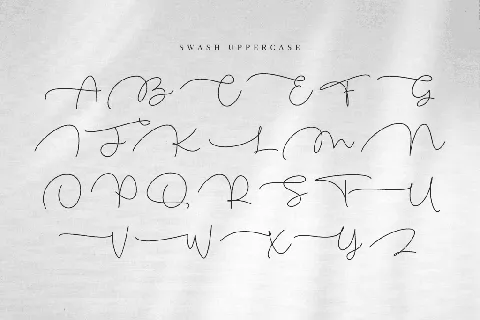 SWASH UPPERCASE
A B C E F G
I J K L M N
O P Q R S T U
V W X Y Z